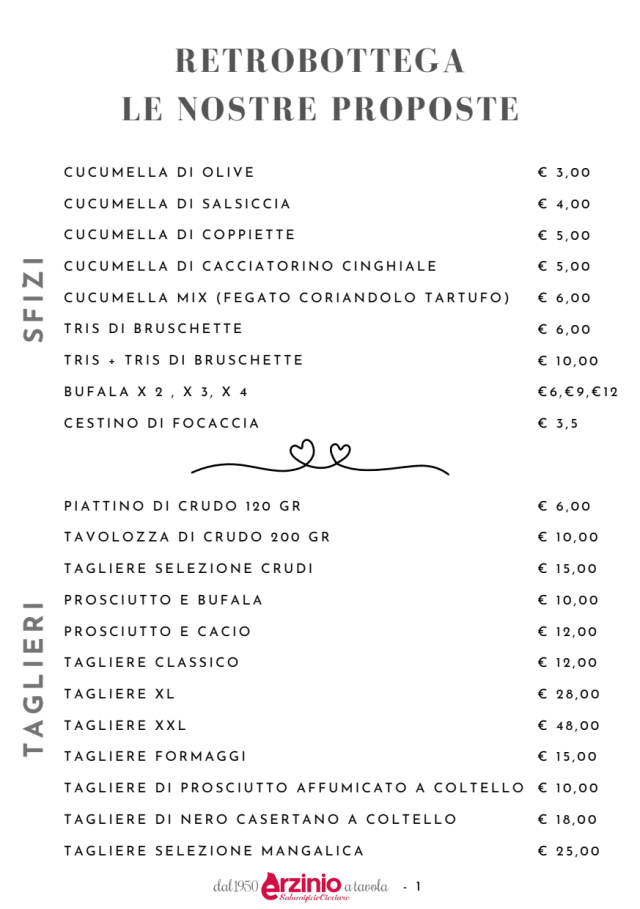 RETROBOTTEGA
LE NOSTRE PROPOSTE
SFIZI
CUCUMELLA DI OLIVE € 3,00
CUCUMELLA DI SALSICCIA € 4,00
CUCUMELLA DI COPPIETTE € 5,00
CUCUMELLA DI CACCIATORINO CINGHIALE € 5,00
CUCUMELLA MIX (FEGATO CORIANDOLO TARTUFO) € 6,00
TRIS DI BRUSCHETTE € 6,00
TRIS + TRIS DI BRUSCHETTE € 10,00
BUFALA X 2 , X 3, X 4 €6,€9,€12
CESTINO DI FOCACCIA € 3,5
TAGLIERI
PIATTINO DI CRUDO 120 GR € 6,00
TAVOLOZZA DI CRUDO 200 GR € 10,00
TAGLIERE SELEZIONE CRUDI € 15,00
PROSCIUTTO E BUFALA € 10,00
PROSCIUTTO E CACIO € 12,00
TAGLIERE CLASSICO € 12,00
TAGLIERE XL € 28,00
TAGLIERE XXL € 48,00
TAGLIERE FORMAGGI € 15,00
TAGLIERE DI PROSCIUTTO AFFUMICATO A COLTELLO € 10,00
TAGLIERE DI NERO CASERTANO A COLTELLO € 18,00
TAGLIERE SELEZIONE MANGALICA € 25,00
dal 1950 erzinio a tavola - 1
Salumificio Ciociaro